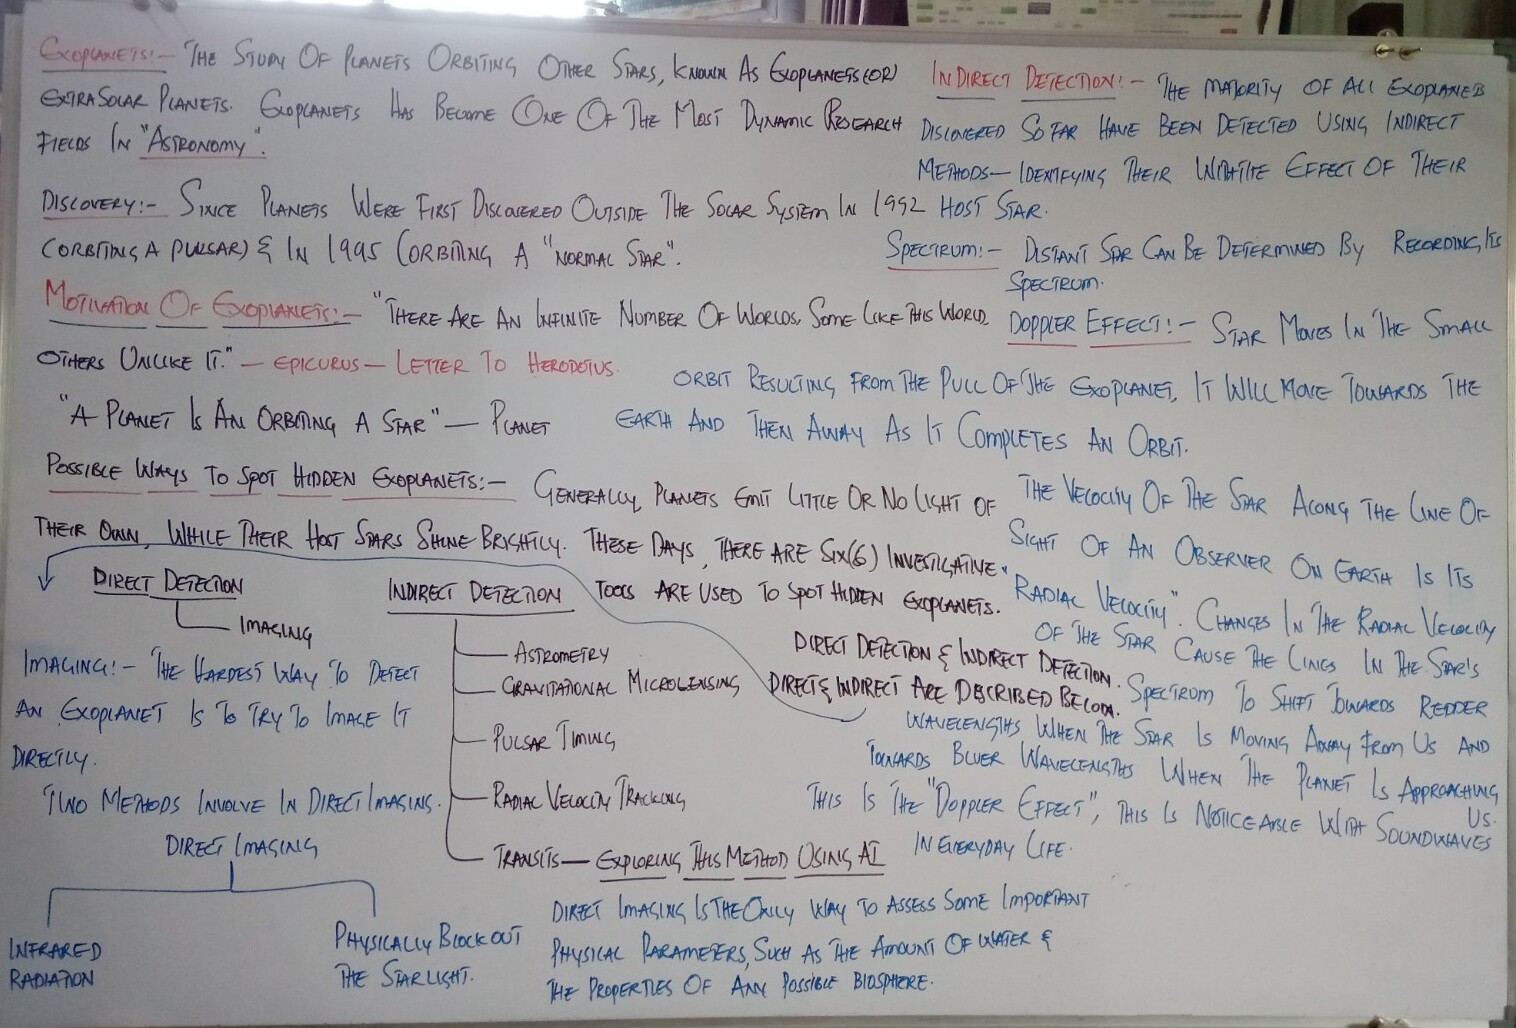 EXOPLANETS:- THE STUDY OF PLANETS ORBITING OTHER STARS, KNOWN AS EXOPLANETS (OR)
EXTRASOLAR PLANETS. EXOPLANETS HAS BECOME ONE OF THE MOST DYNAMIC RESEARCH
FIELDS IN "ASTRONOMY".
DISCOVERY:- SINCE PLANETS WERE FIRST DISCOVERED OUTSIDE THE SOLAR SYSTEM IN 1992
(ORBITING A PULSAR) & IN 1995 (ORBITING A "NORMAL STAR".
MOTIVATION OF EXOPLANETS:- "THERE ARE AN INFINITE NUMBER OF WORLDS, SOME LIKE THIS WORLD,
OTHERS UNLIKE IT." - EPICURUS - LETTER TO HERODOTUS.
"A PLANET IS AN ORBITING A STAR" - PLANET
POSSIBLE WAYS TO SPOT HIDDEN EXOPLANETS:- GENERALLY, PLANETS EMIT LITTLE OR NO LIGHT OF
THEIR OWN, WHILE THEIR HOST STARS SHINE BRIGHTLY. THESE DAYS, THERE ARE SIX(6) INVESTIGATIVE
TOOLS ARE USED TO SPOT HIDDEN EXOPLANETS.
DIRECT DETECTION & INDIRECT DETECTION.
DIRECT & INDIRECT ARE DESCRIBED BELOW.
DIRECT DETECTION
IMAGING
INDIRECT DETECTION
ASTROMETRY
GRAVITATIONAL MICROLENSING
PULSAR TIMING
RADIAL VELOCITY TRACKING
TRANSITS - EXPLORING THIS METHOD USING AI
IMAGING:- THE HARDEST WAY TO DETECT
AN EXOPLANET IS TO TRY TO IMAGE IT
DIRECTLY.
TWO METHODS INVOLVE IN DIRECT IMAGING.
DIRECT IMAGING
INFRARED
RADIATION
PHYSICALLY BLOCK OUT
THE STARLIGHT.
DIRECT IMAGING IS THE ONLY WAY TO ASSESS SOME IMPORTANT
PHYSICAL PARAMETERS, SUCH AS THE AMOUNT OF WATER &
THE PROPERTIES OF ANY POSSIBLE BIOSPHERE.
INDIRECT DETECTION:- THE MAJORITY OF ALL EXOPLANETS
DISCOVERED SO FAR HAVE BEEN DETECTED USING INDIRECT
METHODS- IDENTIFYING THEIR EFFECT OF THEIR
HOST STAR.
SPECTRUM:- DISTANT STAR CAN BE DETERMINED BY RECORDING, ITS
SPECTRUM.
DOPPLER EFFECT:- STAR MOVES IN THE SMALL
ORBIT RESULTING FROM THE PULL OF THE EXOPLANET, IT WILL MOVE TOWARDS THE
EARTH AND THEN AWAY AS IT COMPLETES AN ORBIT.
THE VELOCITY OF THE STAR ALONG THE LINE OF
SIGHT OF AN OBSERVER ON EARTH IS ITS
"RADIAL VELOCITY". CHANGES IN THE RADIAL VELOCITY
OF THE STAR CAUSE THE LINES IN THE STAR'S
SPECTRUM TO SHIFT TOWARDS REDDER
WAVELENGTHS WHEN THE STAR IS MOVING AWAY FROM US AND
TOWARDS BLUER WAVELENGTHS WHEN THE PLANET IS APPROACHING
US.
THIS IS THE "DOPPLER EFFECT", THIS IS NOTICEABLE WITH SOUNDWAVES
IN EVERYDAY LIFE.